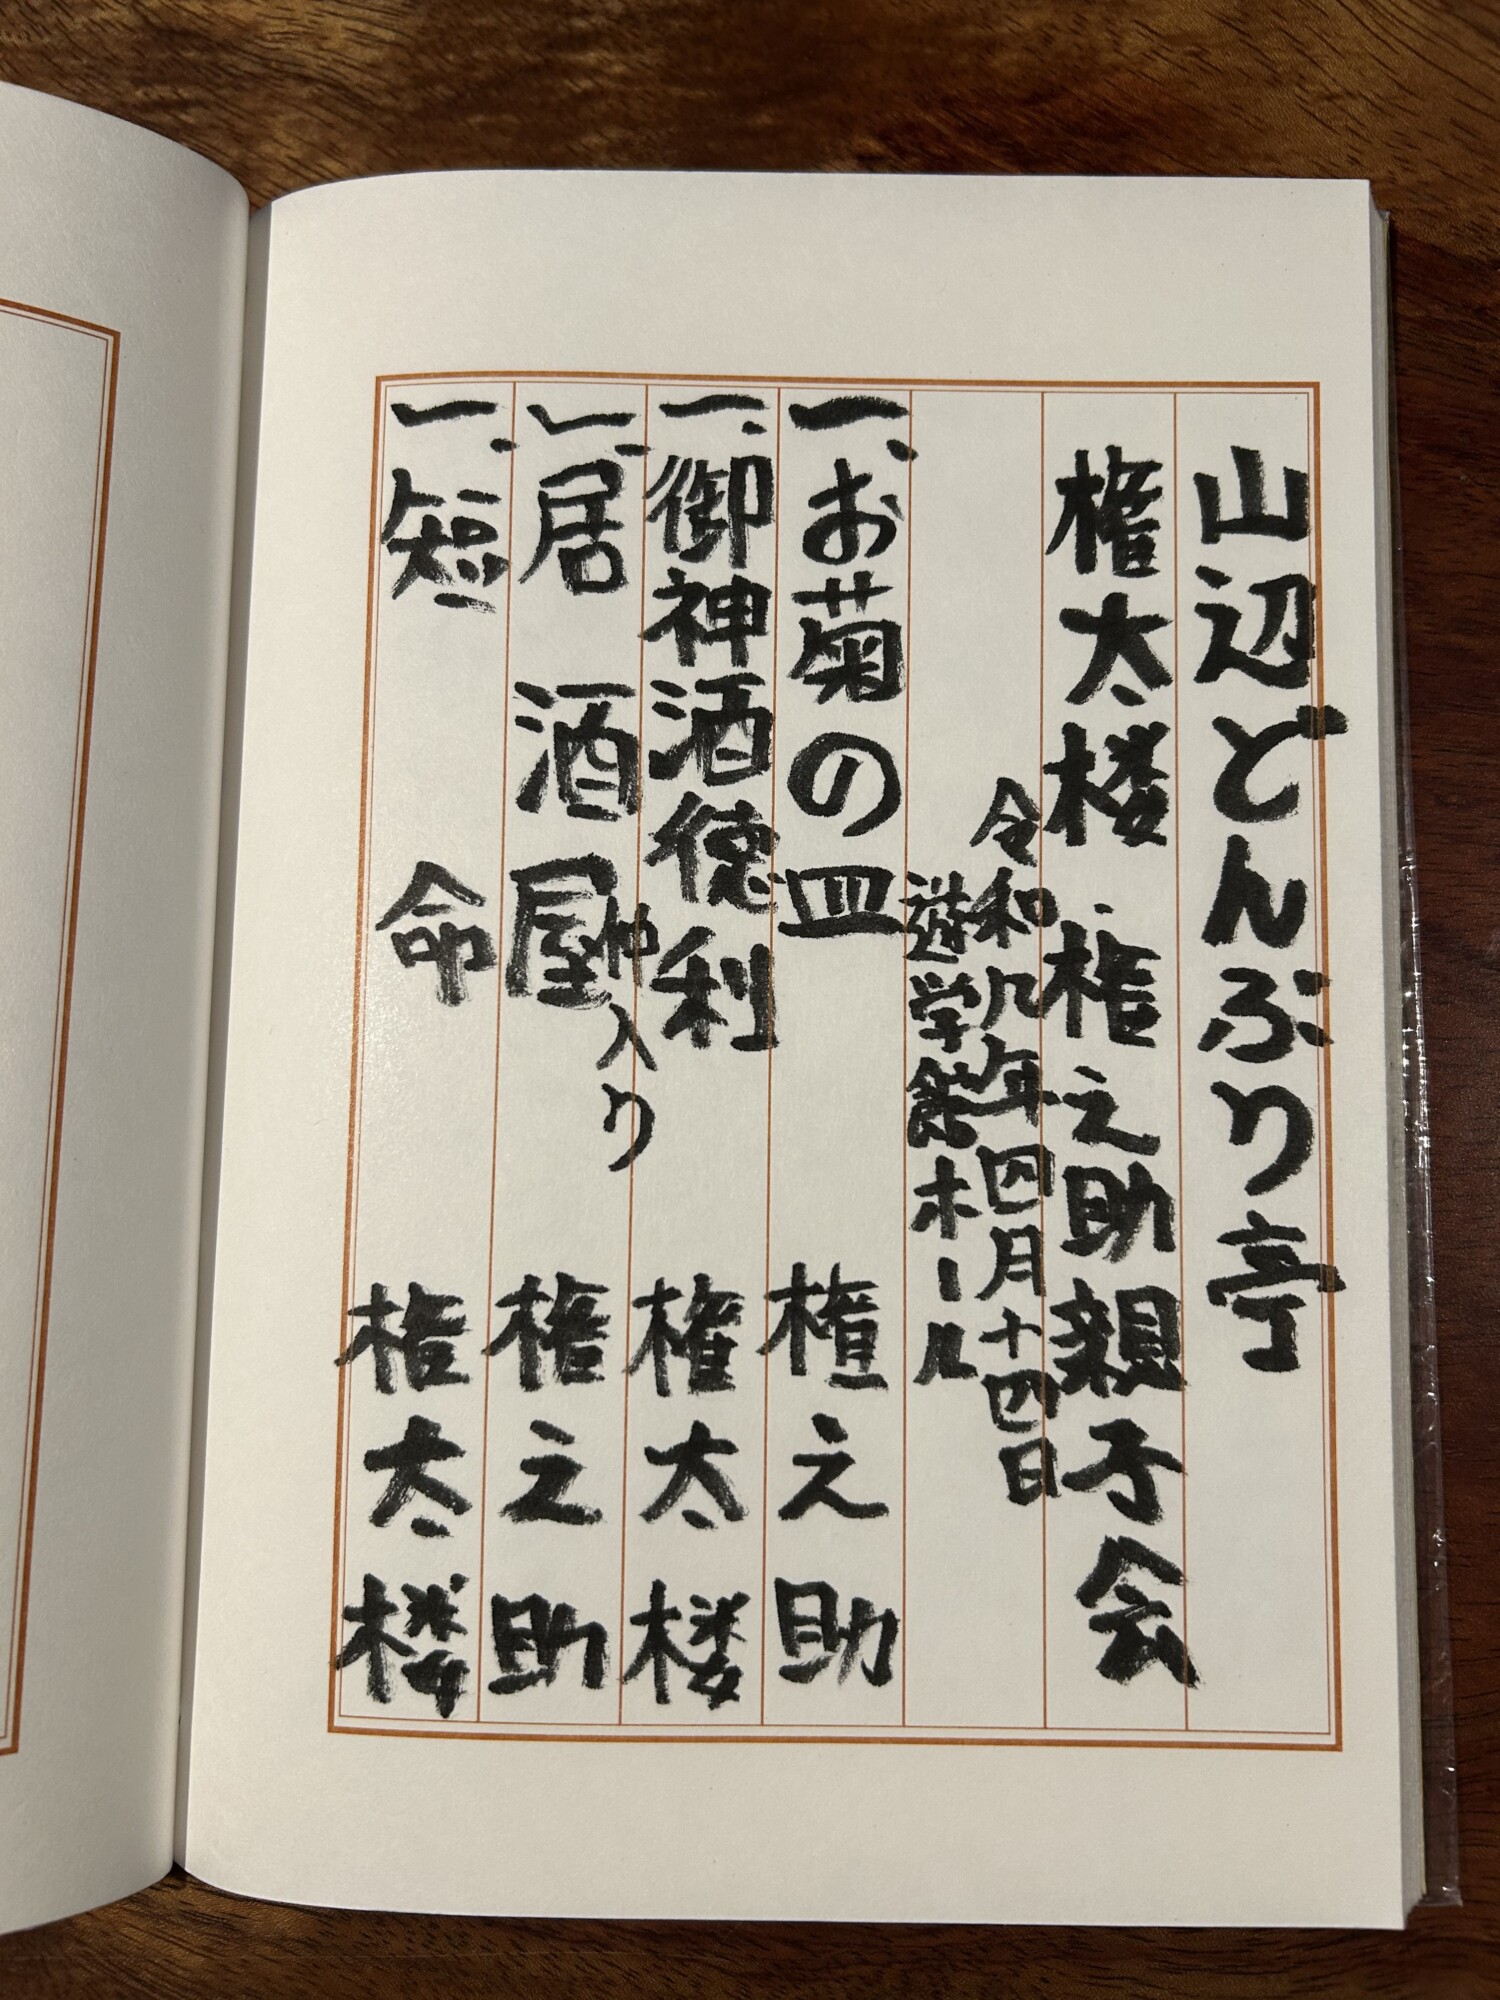 山辺どんぶり亭
権太楼・権之助親子会
令和八年四月十四日
遊学館ホール
一、お菊の皿 権之助
一、御神酒徳利 権太楼
仲入り
一、居酒屋 権之助
一、短命 権太楼